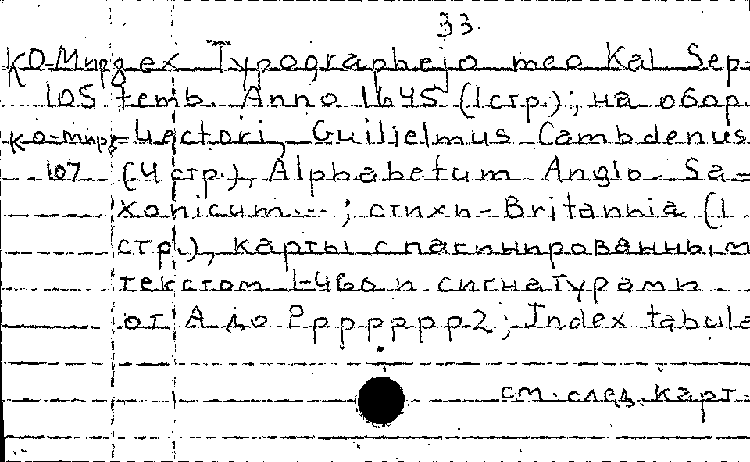 33.
КО-Мирg ex Typographejo meo Kal Sep-
105 temb. Anno 1645 (1 стр.); на обор.
ко-мирg- Lectori, Guilielmus Cambdenus
107 (4 стр.), Alphabetum Anglo-Sa-
xonicum...; стихи-Britannia (1
стр.), карты с пагинированным
текстом 1-460 и сигнатурами
от А до Ppppppp2; Index tabula
см. след. карт.